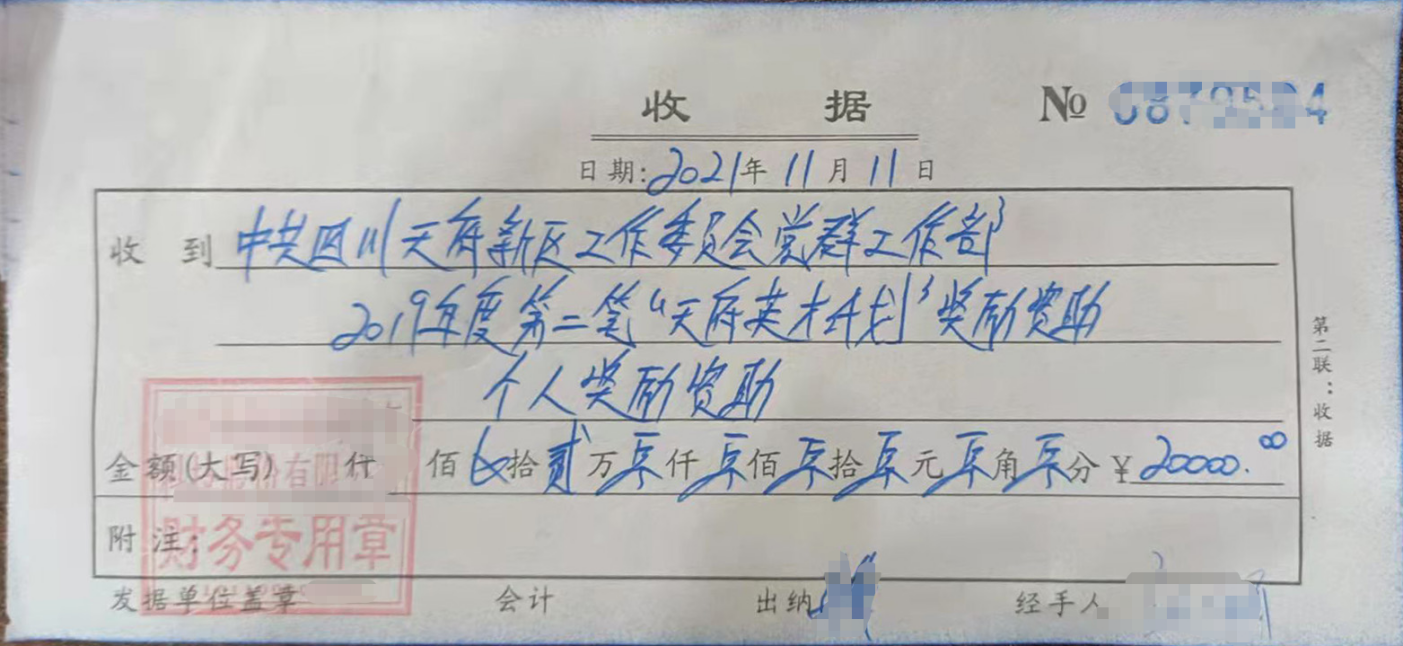 收 据
No
日期:2021年11月11日
收 到 中共四川天府新区工作委员会党群工作部
2019年度第二笔“天府英才计划”奖励资助
个人奖励资助
金额(大写) 仟 佰 ⊗ 拾 贰 万 零 仟 零 佰 零 拾 零 元 零 角 零 分 ¥ 20000.00
附 注:
有限
财务专用章
发据单位盖章 会计 出纳 经手人
第二联:收据